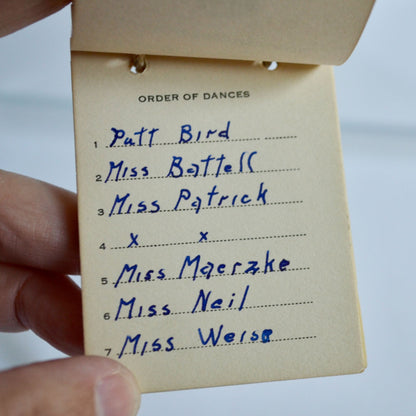 ORDER OF DANCES
1 Putt Bird
2 Miss Battell
3 Miss Patrick
4 x x
5 Miss Maerzke
6 Miss Neil
7 Miss Weise